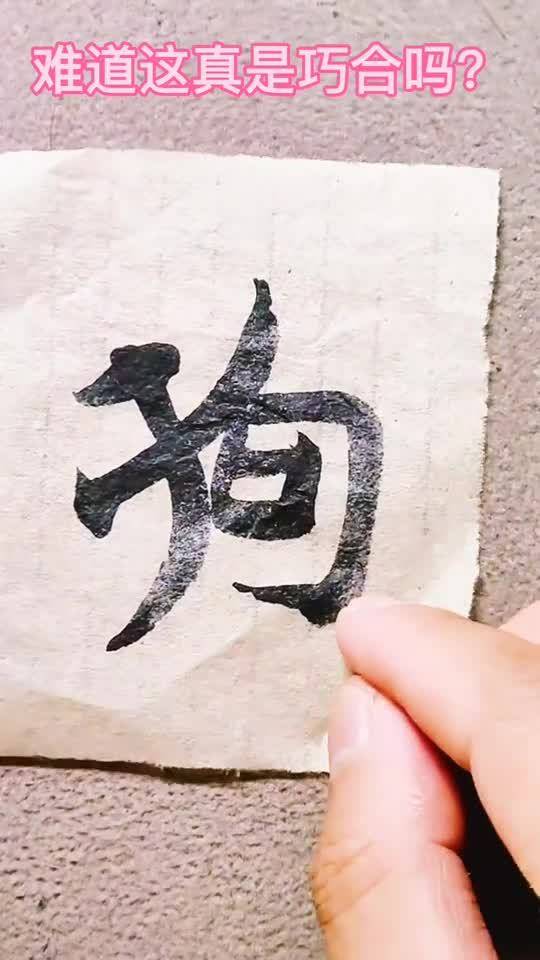 难道这真是巧合吗?
狗